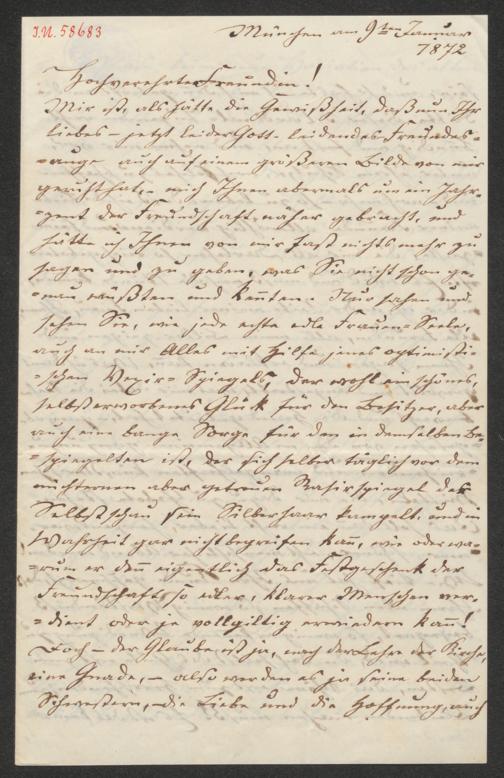 J.N. 58683
München am 9ten Januar
1872
Hochverehrte Freundin!
Mir ist, als hätte die Gewißheit, daß nun Ihr
liebes – jetzt leider Gott leidendes Freundes-
-auge auch auf einem größeren Bilde von mir
geruht hat, – mich Ihnen abermals um ein Jahr-
der Freundschaft näher gebracht, und
hätte ich Ihnen von mir fast nichts mehr zu
sagen und zu geben, was Sie nicht schon ge-
-nau wüßten und kennten. Nur sahen und
sehen Sie, wie jede echte edle Frauen-Seele,
auch an mir Alles mit Hilfe jenes optimisti-
-schen Vexir-Spiegels, der wohl ein schönes,
selbsterworbenes Glück für den Besitzer, aber
auch eine bange Sorge für den in demselben be-
-spiegelten ist, der sich selber täglich vor dem
nüchternen aber getreuen Rasirspiegel der
Selbstschau sein Silberhaar kampelt, und in
Wahrheit gar nicht begreifen kann, wie oder wa-
-rum er denn eigentlich das Festgeschenk der
Freundschaft so edler, klarer Menschen ver-
-dient oder je vollgiltig erwiedern kann!
Doch – der Glaube ist ja, nach der Lehre der Kirche,
eine Gnade, – also werden es ja seine beiden
Schwestern, – die Liebe und die Hoffnung, auch